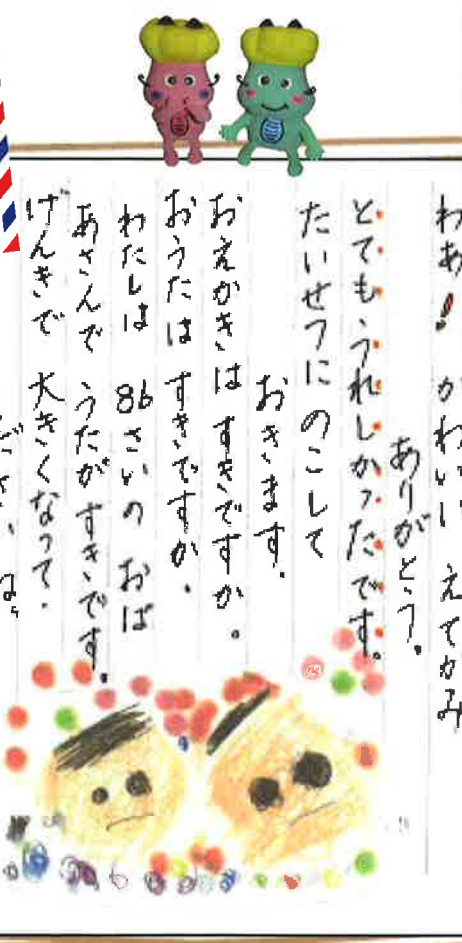 わあ！ かわいい えてがみ
ありがとう。
とてもうれしかったです。
たいせつに のこして
おきます。
おえかきは すきですか。
おうたは すきですか。
わたしは 86さいの おば
あさんで うたが すきです。
げんきで 大きくなって.
ださい ね。